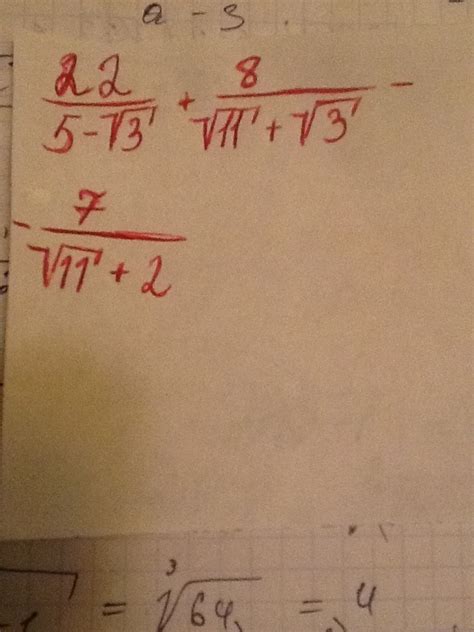 a - 3
22/(5-√3) + 8/(√11 + √3) -
- 7/(√11 + 2)
= ∛64 = 4